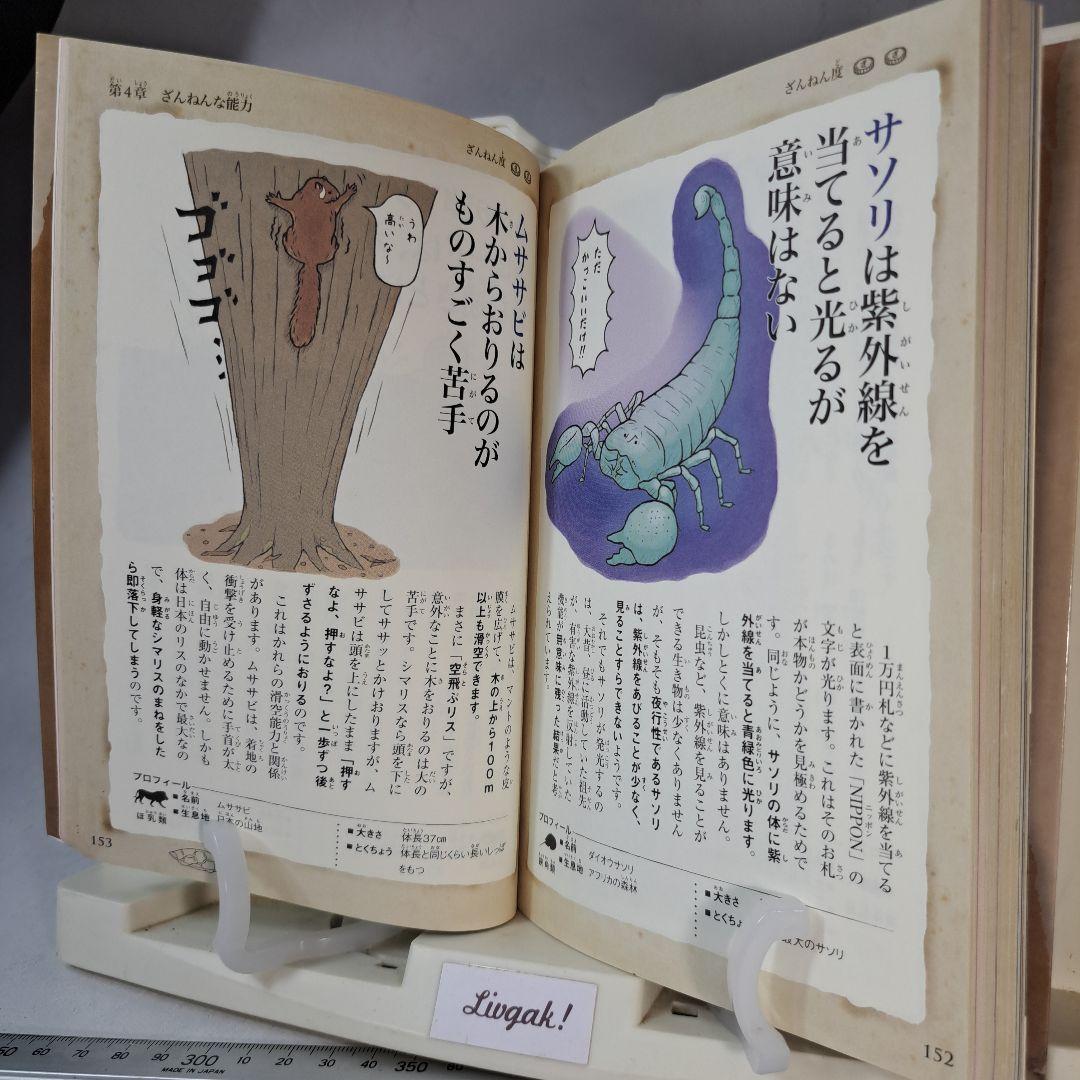 ざんねん度
サソリは紫外線を
当てると光るが
意味はない
ただ
かっこいいだけ!!
1万円札などに紫外線を当てる
と表面に書かれた「NIPPON」の
文字が光ります。これはそのお札
が本物かどうかを見極めるためで
す。同じように、サソリの体に紫
外線を当てると青緑色に光ります。
しかしとくに意味はありません。
昆虫など、紫外線を見ることが
できる生き物は少なくありません
が、そもそも夜行性であるサソリ
は、紫外線をあびることが少なく、
見ることすらできないようです。
それでもサソリが発光するの
は、大昔、昼に活動していた祖先
が、有害な紫外線を反射していた
機能が無意味に残った結果だと考
えられています。
プロフィール
■名前 ダイオウサソリ
■生息地 アフリカの森林
■大きさ
■とくちょ
最大のサソリ
152
第4章 ざんねんな能力
ざんねん度
ムササビは
木からおりるのが
ものすごく苦手
うわ
高いな〜
ゴゴゴ
ムササビは、マントのような皮
膜を広げて、木の上から100m
以上も滑空できます。
まさに「空飛ぶリス」ですが、
意外なことに木をおりるのは大の
苦手です。シマリスなら頭を下に
してササッとかけおりますが、ム
ササビは頭を上にしたまま「押す
なよ、押すなよ?」と一歩ずつ後
ずさるようにおりるのです。
これはかれらの滑空能力と関係
があります。ムササビは、着地の
衝撃を受け止めるために手首が太
く、自由に動かせません。しかも
体は日本のリスのなかで最大なの
で、身軽なシマリスのまねをした
ら即落下してしまうのです。
プロフィール
■名前 ムササビ
■生息地 日本の山地
ほ乳類
■大きさ 体長37cm
■とくちょう 体長と同じくらい長いしっぽ
をもつ
153
Livgak!
50 60 70 80 90 300 10 20 30 40 350 60
MADE IN JAPAN